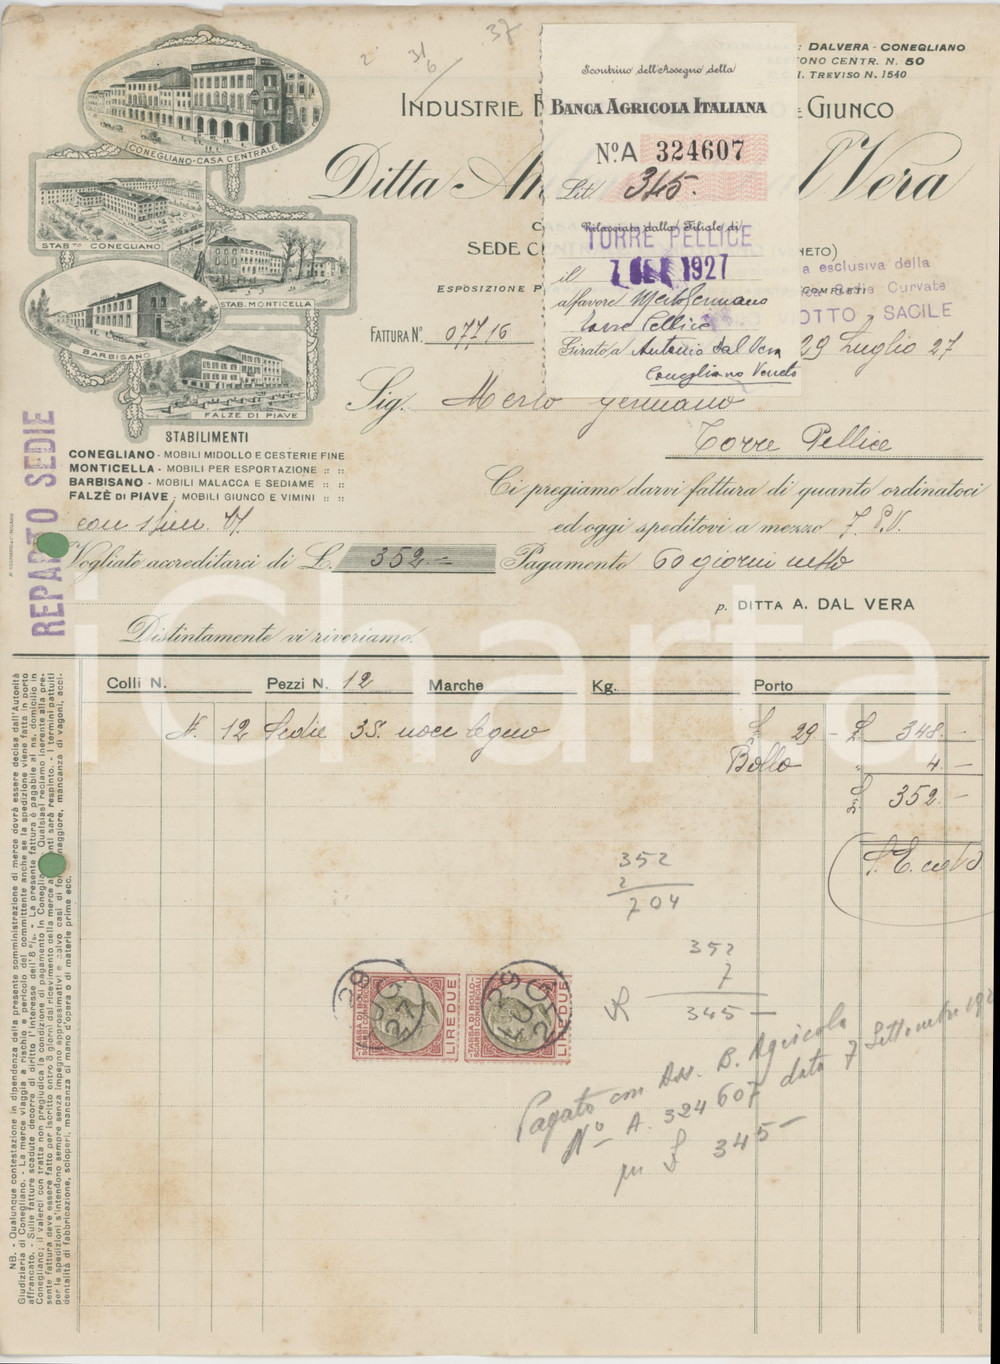 37
31/6
2
: DALVERA - CONEGLIANO
FONO CENTR. N. 50
I. TREVISO N. 1540
INDUSTRIE
E GIUNCO
Ditta
l Vera
SEDE
NETO)
ESPOSIZIONE P
COMPLETI
a esclusiva della
Sedie Curvate
OTTO - SACILE
Scontrino dell'Assegno della
BANCA AGRICOLA ITALIANA
N.º A 324607
Lit. 345.-
Rilasciato dalla Filiale di
TORRE PELLICE
il 7 SET 1927
a favore Merlo Germano
Torre Pellice
Girato a Antonio Dal Vera
Conegliano Veneto
CONEGLIANO-CASA CENTRALE
STAB.TO CONEGLIANO
STAB. MONTICELLA
BARBISANO
FALZE DI PIAVE
FATTURA N.º 07716
29 Luglio 27
Sig. Merlo Germano
Torre Pellice
STABILIMENTI
CONEGLIANO - MOBILI MIDOLLO E CESTERIE FINE
MONTICELLA - MOBILI PER ESPORTAZIONE :: ::
BARBISANO - MOBILI MALACCA E SEDIAME :: ::
FALZÈ DI PIAVE - MOBILI GIUNCO E VIMINI :: ::
REPARTO SEDIE
Ci pregiamo darvi fattura di quanto ordinatoci
ed oggi speditovi a mezzo F. P.V.
Vogliate accreditarci di L. 352.-
Pagamento 60 giorni netto
p. DITTA A. DAL VERA
Distintamente vi riveriamo.
iCharta
Colli N. Pezzi N. 12 Marche Kg. Porto
N. 12 Sedie 35. noce legno £ 29 - £ 348.-
Bollo " 4.-
£ 352.-
352
2
704
352
7
345 -
TASSA DI BOLLO-
SCAMBI COMMERCIALI
LIRE DUE
TASSA DI BOLLO-
SCAMBI COMMERCIALI
LIRE DUE
Pagato con Ass. B. Agricola
Nº A. 324607 data 7 Settembre
per £ 345-
NB. - Qualunque contestazione in dipendenza della presente somministrazione di merce dovrà essere decisa dall'Autorità
Giudiziaria di Conegliano. - La merce viaggia a rischio e pericolo del committente anche se la spedizione viene fatta in porto
affrancato. - Sulle fatture scadute decorre di diritto l'interesse dell'8 %. - La presente fattura è pagabile al ns. domicilio in
Conegliano; il valerci con tratta non pregiudica la condizione di pagamento in Conegliano. Qualsiasi reclamo inerente alla pre-
sente fattura deve essere fatto per iscritto entro 8 giorni dal ricevimento della merce altrimenti sarà respinto. - I termini pattuiti
per le spedizioni s'intendono sempre senza impegno approssimativi e salvo casi di forza maggiore, mancanza di vagoni, acci-
dentalità di fabbricazione, scioperi, mancanza di mano d'opera o di materie prime ecc.